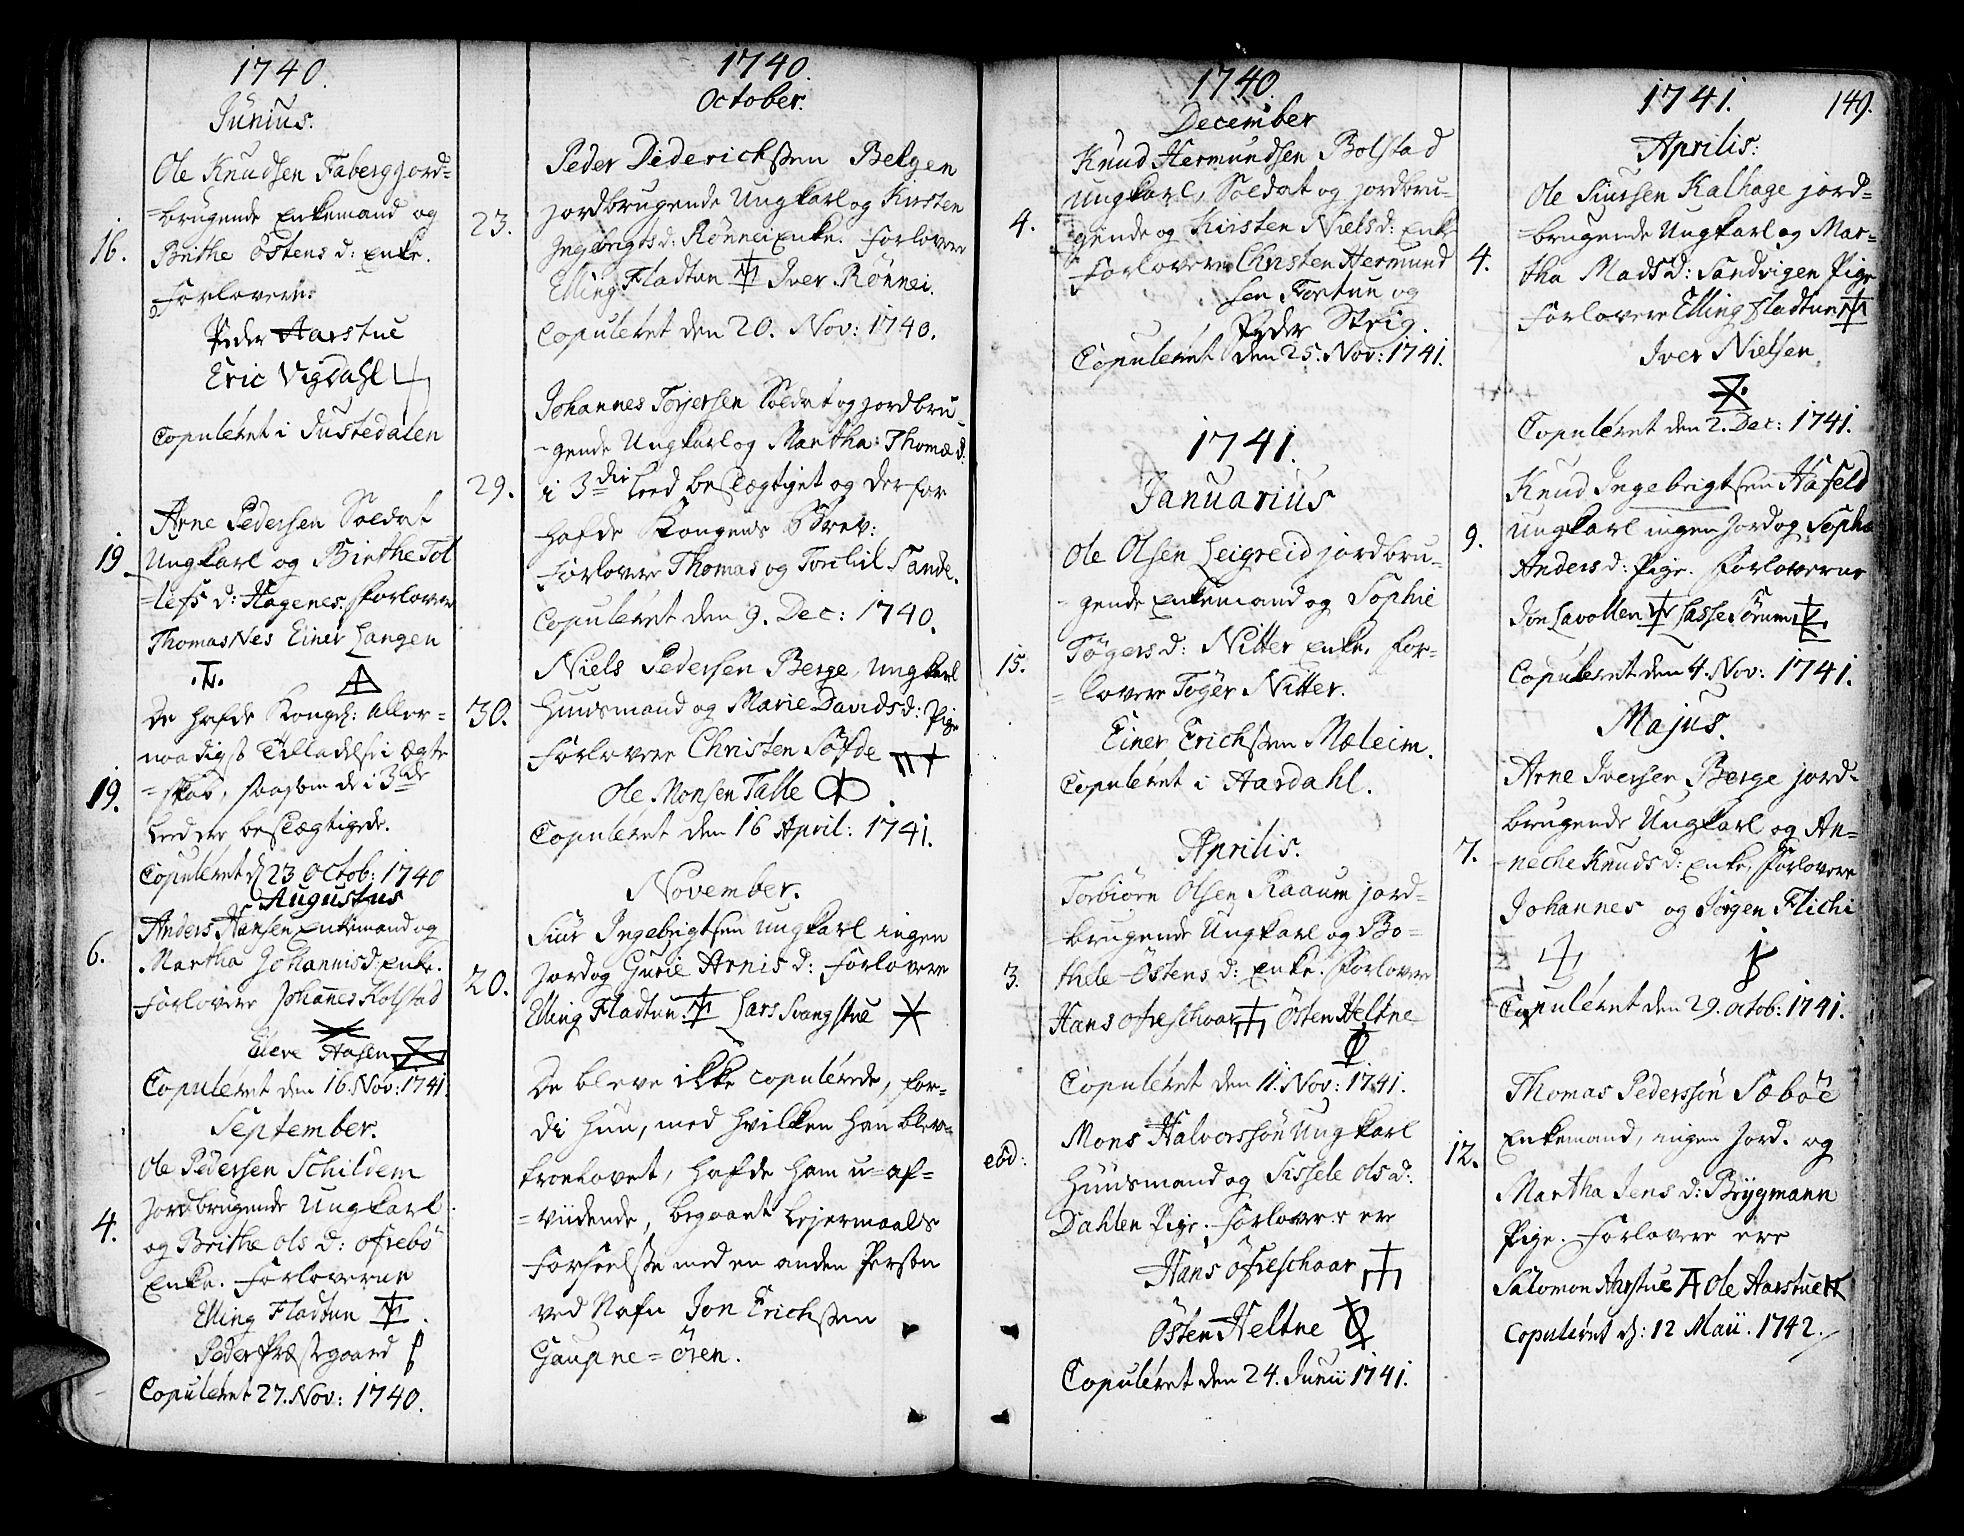 1740.
Junius.
Ole Knudsen Faberg jord=
16. =brugende Enkemand og
Brithe Östens d: Enke.
Forlovere:
Peder Aarstue
Eric Vigdahl
Copuleret i Justedalen
Arne Pedersen Soldat
19. Ungkarl og Birthe Tol
=lefs d: Hagenes. Forlovere
Thomas Nes Einer Langen
De hafde Kongel: Aller=
naadigst Tilladelse i Ægte
19. =skab, saasom de i 3de
Leed ere beslægtigede.
Copuleret d 23 Octob: 1740
Augustus
Anders Hansen Enkemand og
6. Martha Johannis d: Enke.
Forlovere Johannes Kolstad
Hasen
Copuleret den 16. Nov: 1741.
September.
Ole Pedersen Schildem
Jordbrugende Ungkarl
4. og Brithe Ols d: Ofrebö
Enke. Forloverne
Elling Fladtun
Peder Præstgaard
Copuleret 27. Nov: 1740.
1740.
October.
Peder Diderichssen Belgen
23. jordbrugende Ungkarl og Kirsten
Ingebrigts d: Rönnei Enke. Forlovere
Elling Fladtun Iver Rönnei.
Copuleret den 20. Nov: 1740.
Johannes Torjersen Soldat og jordbru
=gende Ungkarl og Martha: Thomæ d:
29. i 3die Leed beslægtiget og derfor
hafde Kongens Brev:
Forlovere Thomas og Torchil Sande.
Copuleret den 9. Dec: 1740.
Niels Pedersen Berge, Ungkarl
30. Huusmand og Marie Davids d: Pige
Forlovere Christen Söfde
Ole Monsen Talle
Copuleret den 16 April: 1741.
November.
Siur Ingebrigtsen ungkarl ingen
20. Jord og Gurie Arnis d: Forlovere
Elling Fladtun Lars Svangstue
De bleve ikke copulerede, for=
di hun, med hvilken han blev
troelovet, hafde ham u=af=
=viidende, begaaet Lejermaals
Forseelse med en anden Person
ved Nafn Jon Erichssen
Gaupne=ören.
1740.
December
Knud Hermundsen Bolstad
Ungkarl, Soldat og jordbru=
4. gende og Kirsten Niels d: Enke
Forlovere Christen Hermund
sen Fortun og
Peder Steig.
Copuleret den 25. Nov: 1741.
1741.
Januarius
Ole Olsen Leigreid jordbru=
=gende Enkemand og Sophie
15. Tögers d: Nitter Enke. For=
=lovere Töger Nitter.
Einer Erichssen Mæleim.
Copuleret i Aardahl.
Aprilis.
Torbiörn Olsen Raaum jord=
=brugende Ungkarl og Bo=
3. thele Östens d: Enke. Forlovere
Hans Ofreschaar Östen Heltne
Copuleret den 11. Nov: 1741.
Mons Halvorssön Ungkarl
eod: Huusmand og Sissele Ols d:
Dahlen Pige. Forlovere ere
Hans Öfreschaar
Östen Heltne
Copuleret den 24. Junii 1741.
1741. 149.
Aprilis:
Ole Siursen Kalhage jord=
=brugende Ungkarl og Mar=
4. tha Mads d: Sandvigen Pige
Forlovere Elling Fladtun
Iver Nielsen
Copuleret den 2. Dec: 1741.
Knud Ingebrigtsen Hafeld
9. Ungkarl ingen Jord og Sophe
Anders d: Pige. Forloverne
Jon Lavollen Lasse Sörum
Copuleret den 4. Nov: 1741.
Majus.
Arne Iversen Berge jord=
brugende Ungkarl og An=
7. =neche Knuds d: Enke, Forlovere
Johannes og Jörgen Flichi
Copuleret den 29. Octob: 1741.
Thomas Pederssön Sæböe
12. Enkemand, ingen Jord. og
Martha Jens d: Brygmann
Pige. Forlovere ere
Salomon Aarstue Ole Aarstue
Copuleret d: 12 Maii. 1742.